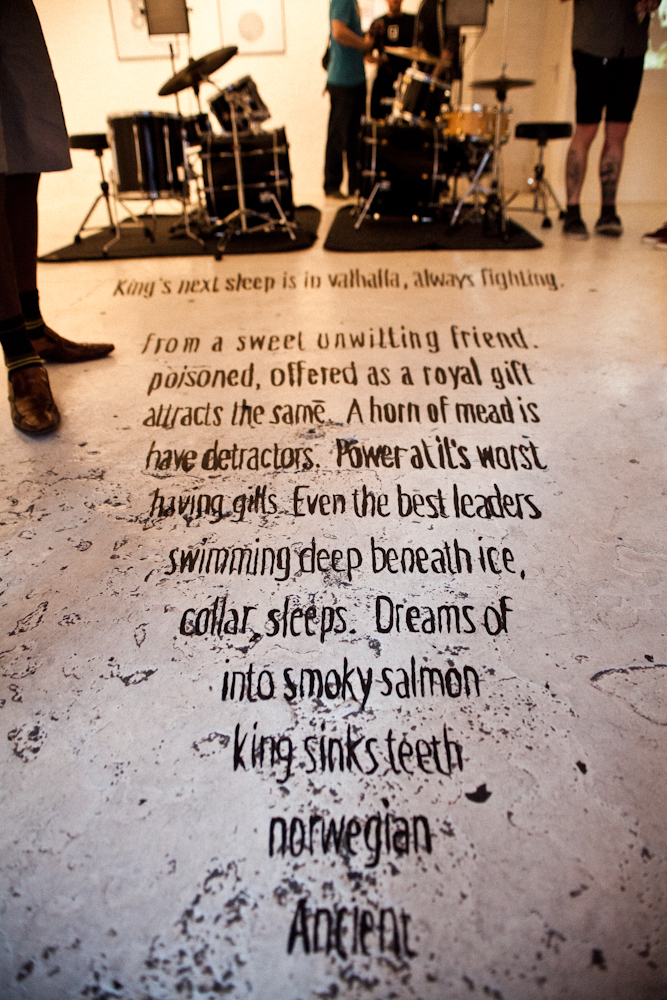 Ancient
norwegian
king sinks teeth
into smoky salmon
collar, sleeps. Dreams of
swimming deep beneath ice,
having gills. Even the best leaders
have detractors. Power at it's worst
attracts the same. A horn of mead is
poisoned, offered as a royal gift
from a sweet unwitting friend.
King's next sleep is in valhalla, always fighting.